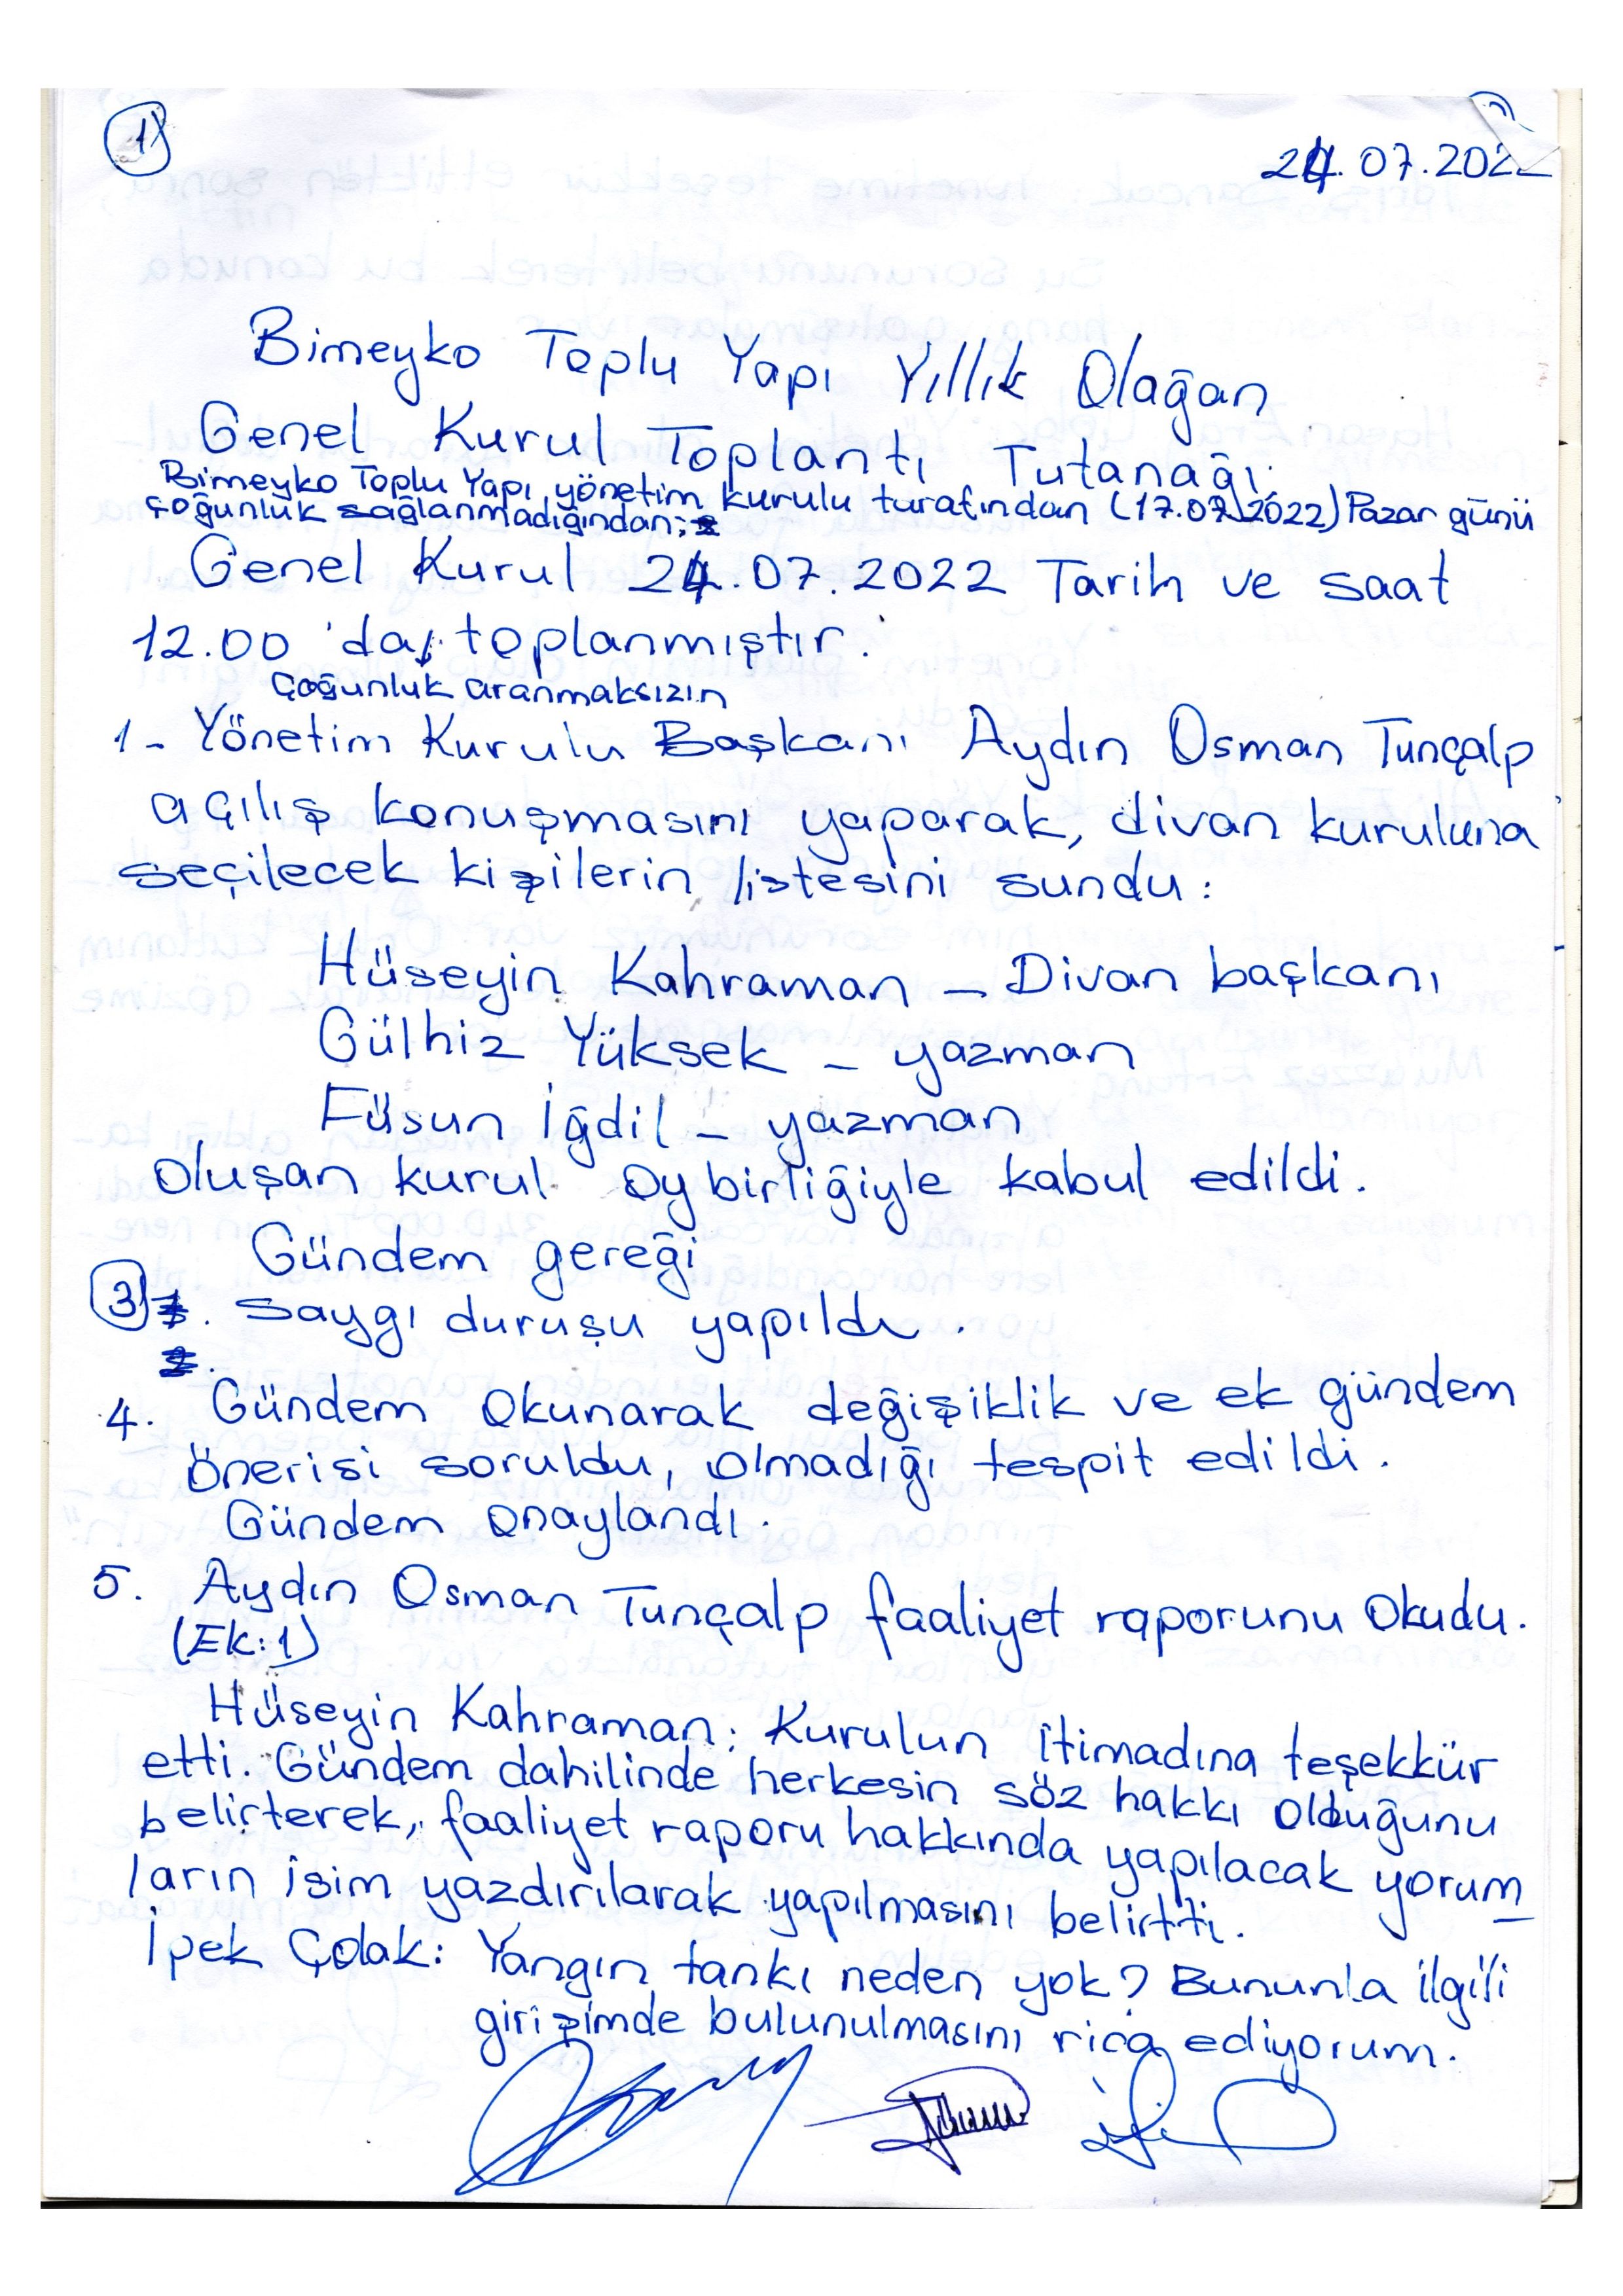 1)
24.07.2022
Bimeyko Toplu Yapı Yıllık Olağan
Genel Kurul Toplantı Tutanağı
Bimeyko Toplu Yapı yönetim kurulu turafından (17.07.2022) Pazar günü
çoğunluk sağlanmadığından;
Genel Kurul 24.07.2022 Tarih ve saat
12.00 'da, toplanmıştır.
Çoğunluk aranmaksızın
1- Yönetim Kurulu Başkanı Aydın Osman Tunçalp
açılış konuşmasını yaparak, divan kuruluna
seçilecek kişilerin listesini sundu:
Hüseyin Kahraman - Divan başkanı
Gülhiz Yüksek - yazman
Füsun İğdil - yazman
Oluşan kurul oybirliğiyle kabul edildi.
Gündem gereği
3). Saygı duruşu yapıldı.
4. Gündem okunarak değişiklik ve ek gündem
önerisi soruldu, olmadığı tespit edildi.
Gündem onaylandı.
5. Aydın Osman Tunçalp faaliyet raporunu okudu.
(Ek:1)
Hüseyin Kahraman: Kurulun itimadına teşekkür
etti. Gündem dahilinde herkesin söz hakkı olduğunu
belirterek, faaliyet raporu hakkında yapılacak yorum-
ların isim yazdırılarak yapılmasını belirtti.
İpek Çolak: Yangın tankı neden yok? Bununla ilgili
girişimde bulunulmasını rica ediyorum.